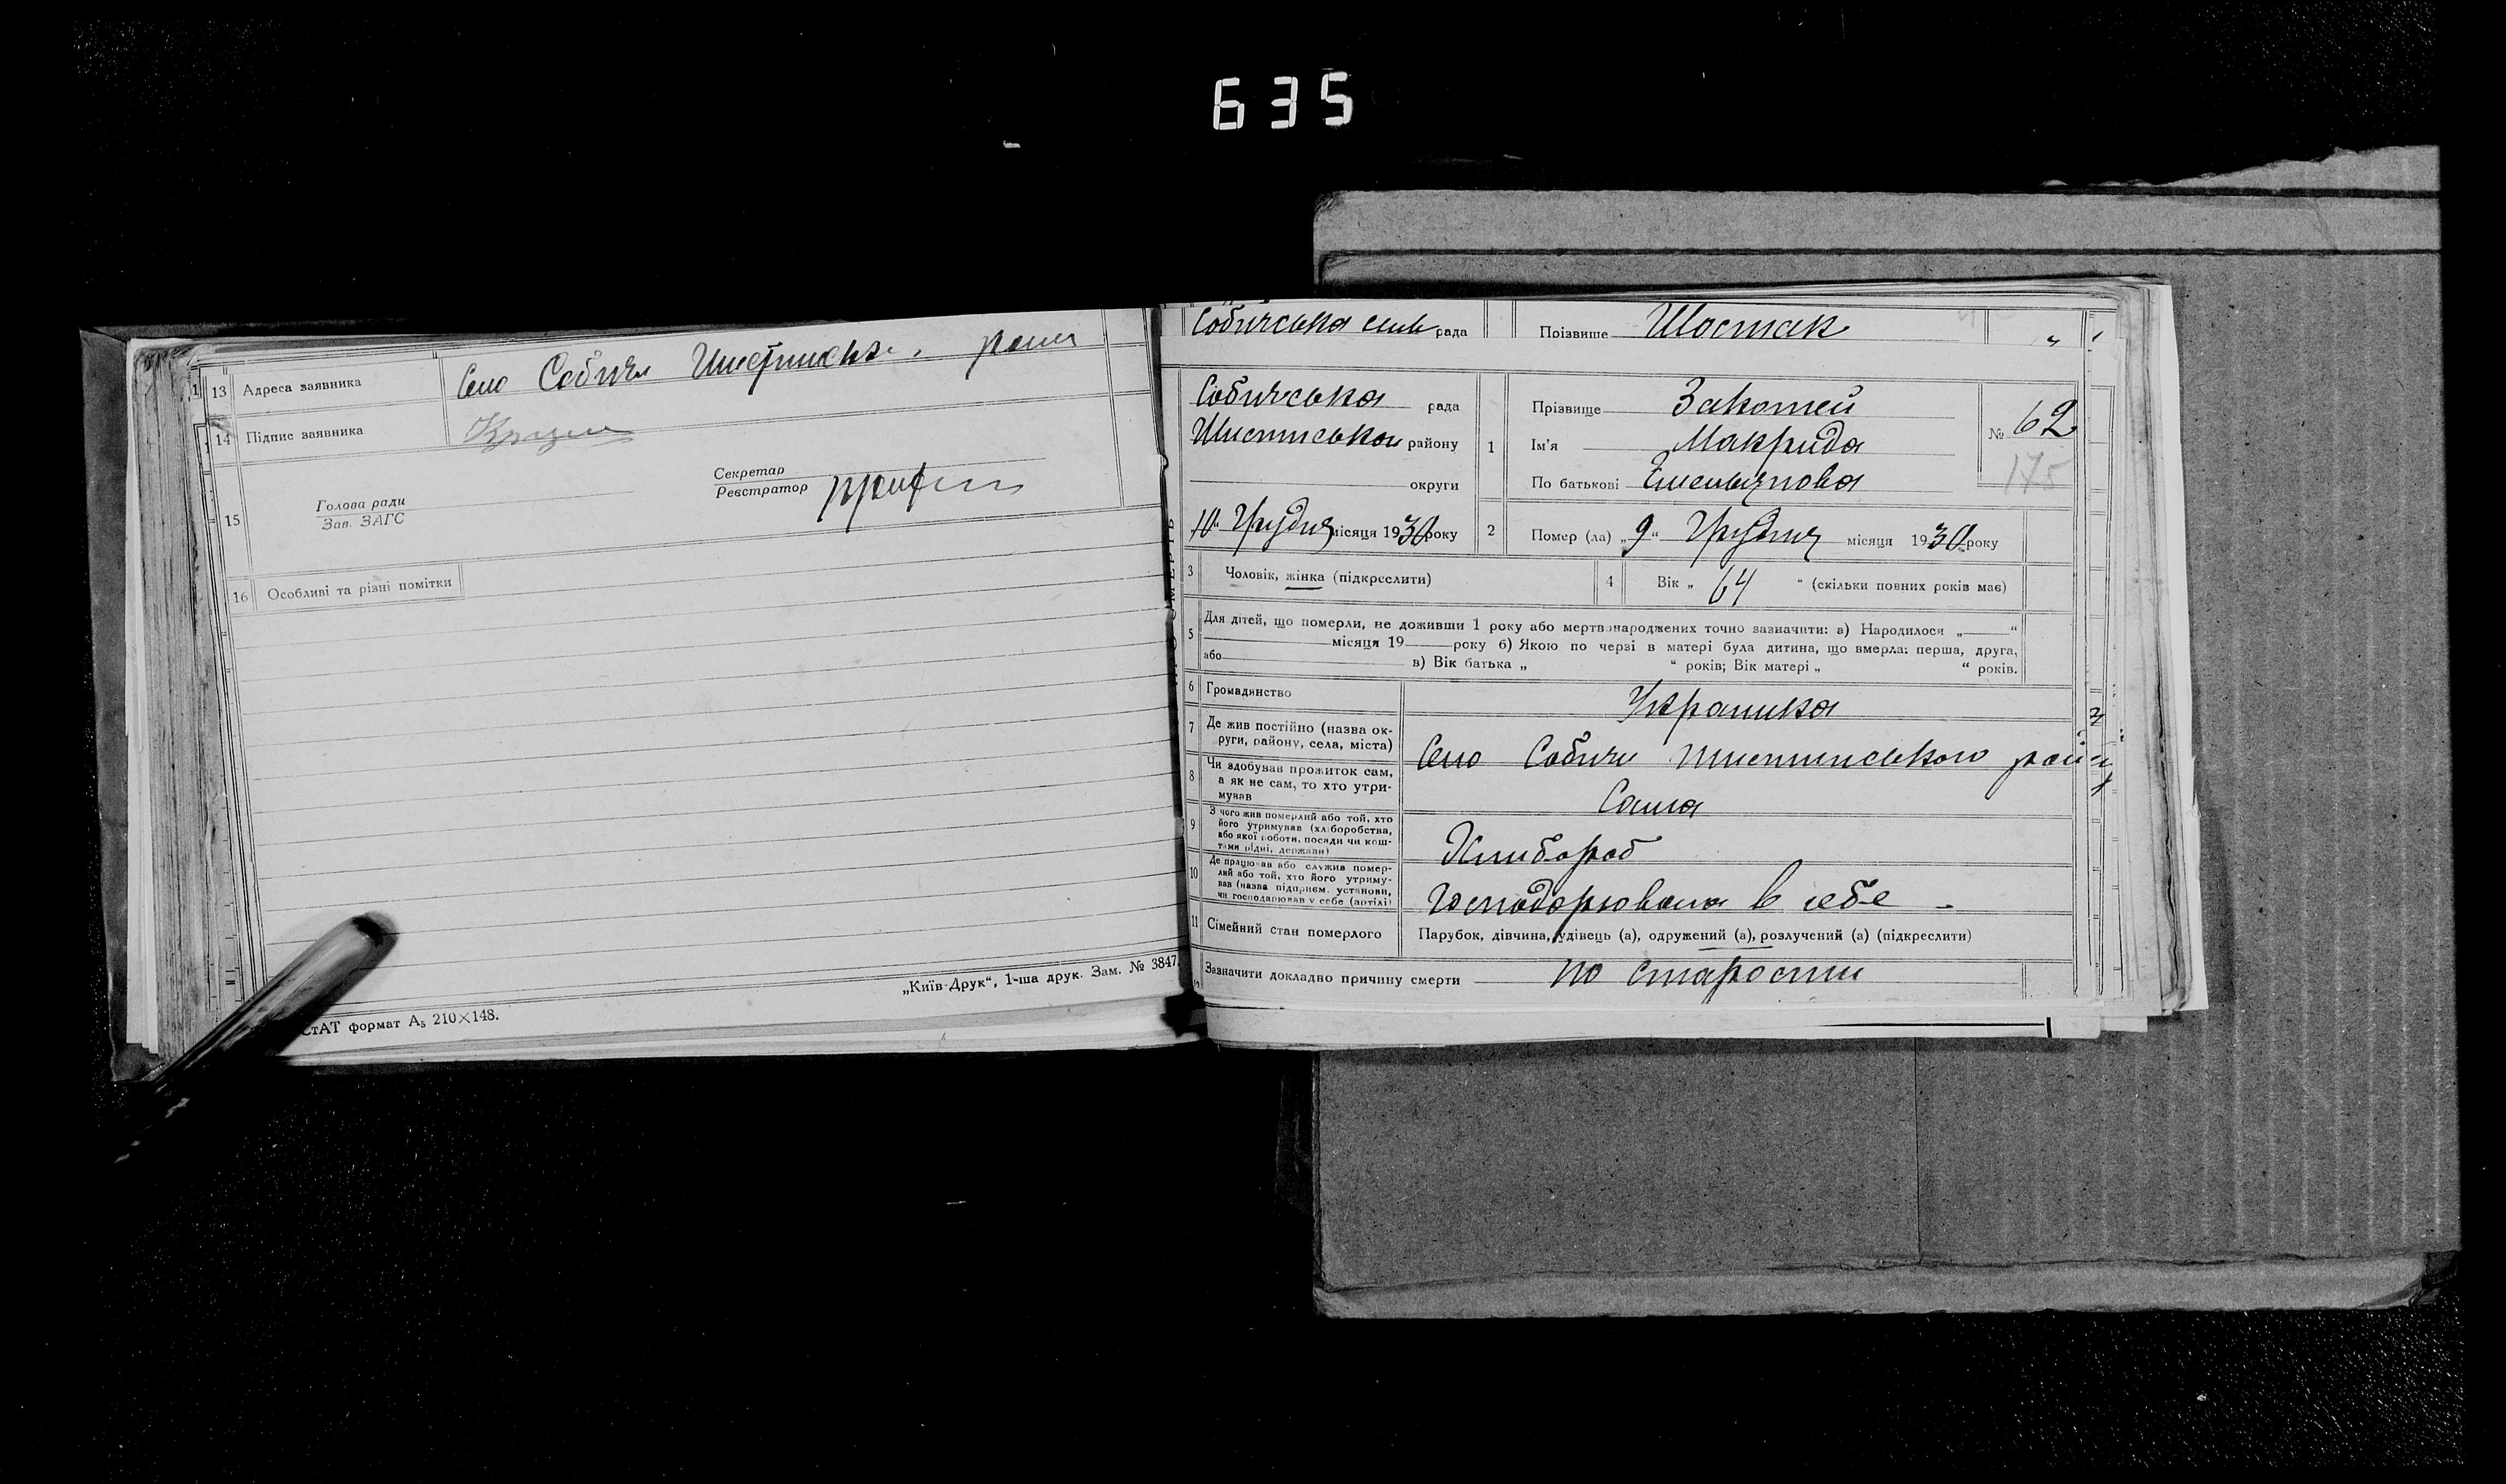 635
13 Адреса заявника Село Собичи
14 Підпис заявника
15 Голова ради
Зав. ЗАГС
Секретар
Реєстратор
16 Особливі та різні помітки
„Київ-Друк“, 1-ша друк. Зам. № 3847.
СтАТ формат А₅ 210×148.
Собичська рада Прізвище Шостак
Собичська рада
района
округи
10 “ Грудня місяця 1930 року
1 Прізвище Закотей
Ім’я Макрида
По батькові
№ 62
175
2 Помер (ла) „9“ Грудня місяця 1930 року
3 Чоловік, жінка (підкреслити)
4 Вік „ 64 “ (скільки повних років має)
5 Для дітей, що померли, не доживши 1 року або мертвонароджених точно зазначити: а) Народилося „ “
місяця 19 року б) Якою по черзі в матері була дитина, що вмерла: перша, друга,
або в) Вік батька „ “ років; Вік матері „ “ років.
6 Громадянство Украинка
7 Де жив постійно (назва округи, району, села, міста) Село Собичи
8 Чи здобував прожиток сам,
а як не сам, то хто утримував
Сама
9 З чого жив померлий або той, хто
його утримував (хліборобства,
або якої роботи, посади чи коштами рідні, держави)
Хлибороб
10 Де працював або служив померлий або той, хто його утримував (назва підприєм. установи,
чи господарював у себе (артілі)
Господорювала в себе -
11 Сімейний стан померлого Парубок, дівчина, удівець (а), одружений (а), розлучений (а) (підкреслити)
Зазначити докладно причину смерти по старости